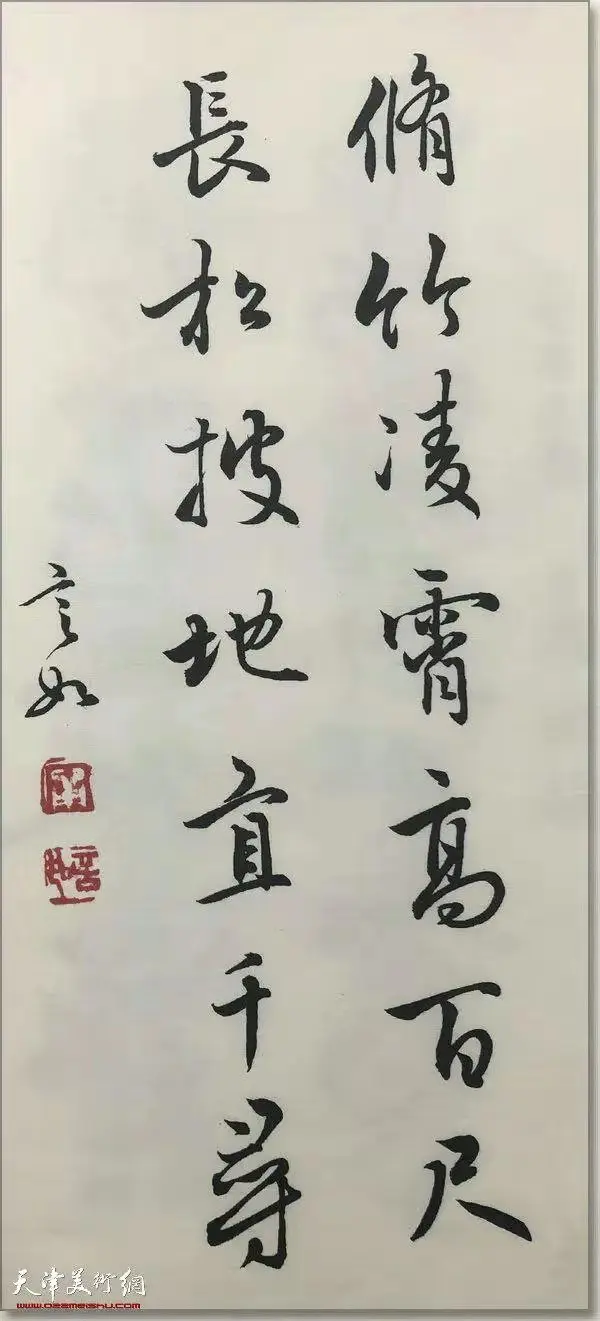 脩竹凌霄高百尺
長松拔地直千尋
天津美術網
www.022meishu.com